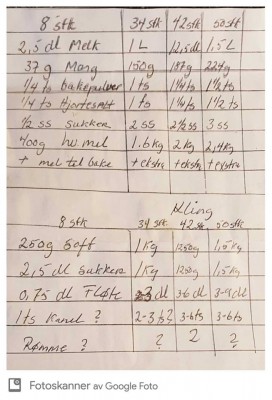 8 stk 34 stk 42 stk 50 stk
2,5 dl Melk 1 L 12,5 dl 1,5 L
37 g Marg 150g 187g 224g
1/4 ts bakepulver 1 ts 1 1/4 ts 1 1/2 ts
1/4 ts Hjortesalt 1 ts 1 1/4 ts 1 1/2 ts
1/2 ss sukker 2 ss 2 1/2 ss 3 ss
400g hv. mel 1.6 kg 2 kg 2,4 kg
+ mel til bake + ekstra + ekstra + ekstra
Kling
8 stk 34 stk 42 stk 50 stk
250g Soft 1 kg 1250g 1,5 kg
2,5 dl sukker 1 kg 1250g 1,5 kg
0,75 dl Fløte 3 dl 3-6 dl 3-9 dl
1 ts Kanel ? 2-3 ts? 3-6 ts 3-6 ts
Rømme ? ? 2 ?
Fotoskanner av Google Foto